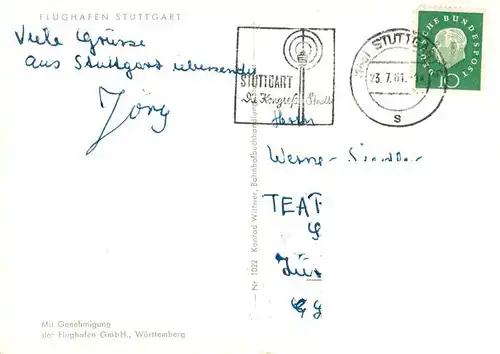 FLUGHAFEN STUTTGART
Viele Grüsse
aus Stuttgart übersendet
Jörg
STUTTGART
Die Kongreß-Stadt
STUTTGART
23.7.61.
s
DEUTSCHE BUNDESPOST
10
Herrn
Werner
TEAT
Mit Genehmigung
der Flughafen GmbH., Württemberg
Nr. 1022 Konrad Wittwer, Bahnhofbuchhandlung